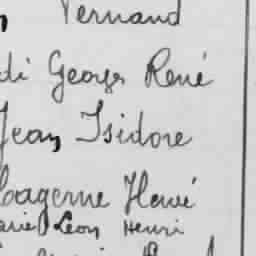 Fernand
di Georges René
Jean Isidore
Lagerne Hervé
Marie Léon Henri